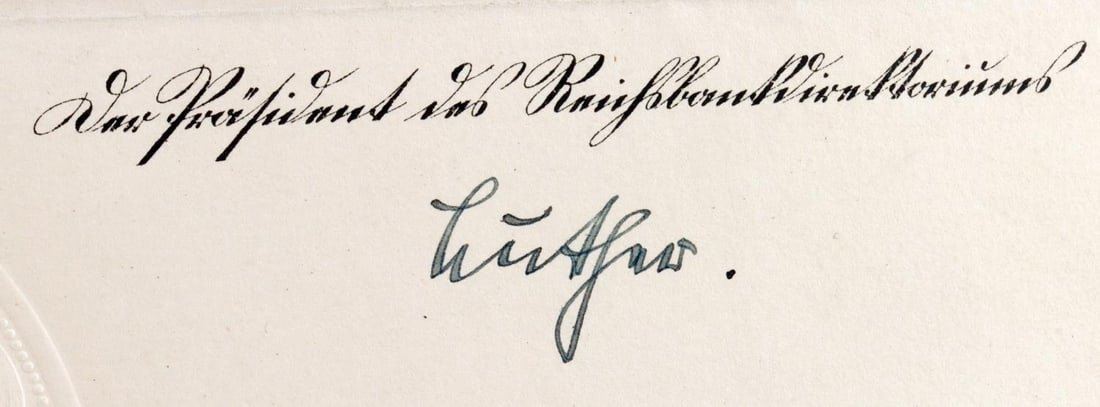 Der Präsident des Reichsbankdirektoriums
Luther.